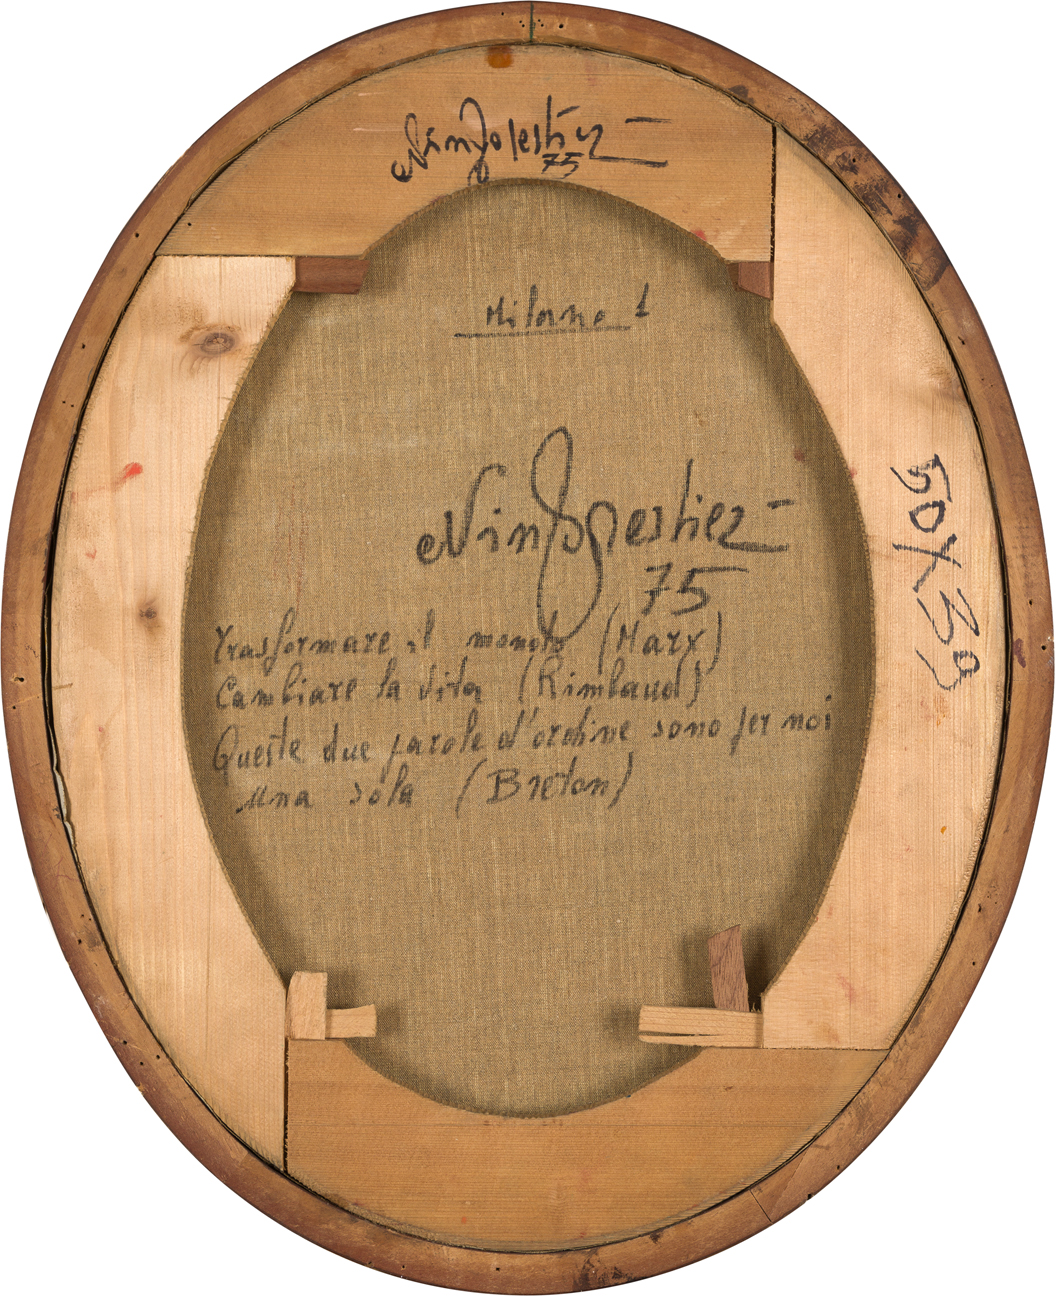 Nin Jolestiez
75
Milano 1
Nin Jolestiez
75
Trasformare il mondo (Marx)
Cambiare la vita (Rimbaud)
Queste due parole d'ordine sono per noi
una sola (Breton)
50 X 39